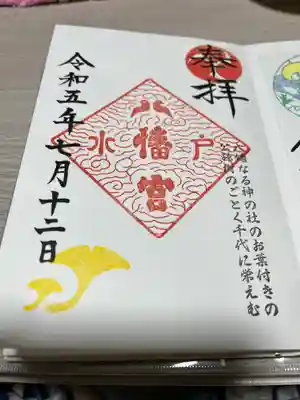 奉拝
八幡宮
水戸
大過なる神の社のお葉付きの
公孫樹のごとく千代に栄えむ
令和五年七月十二日